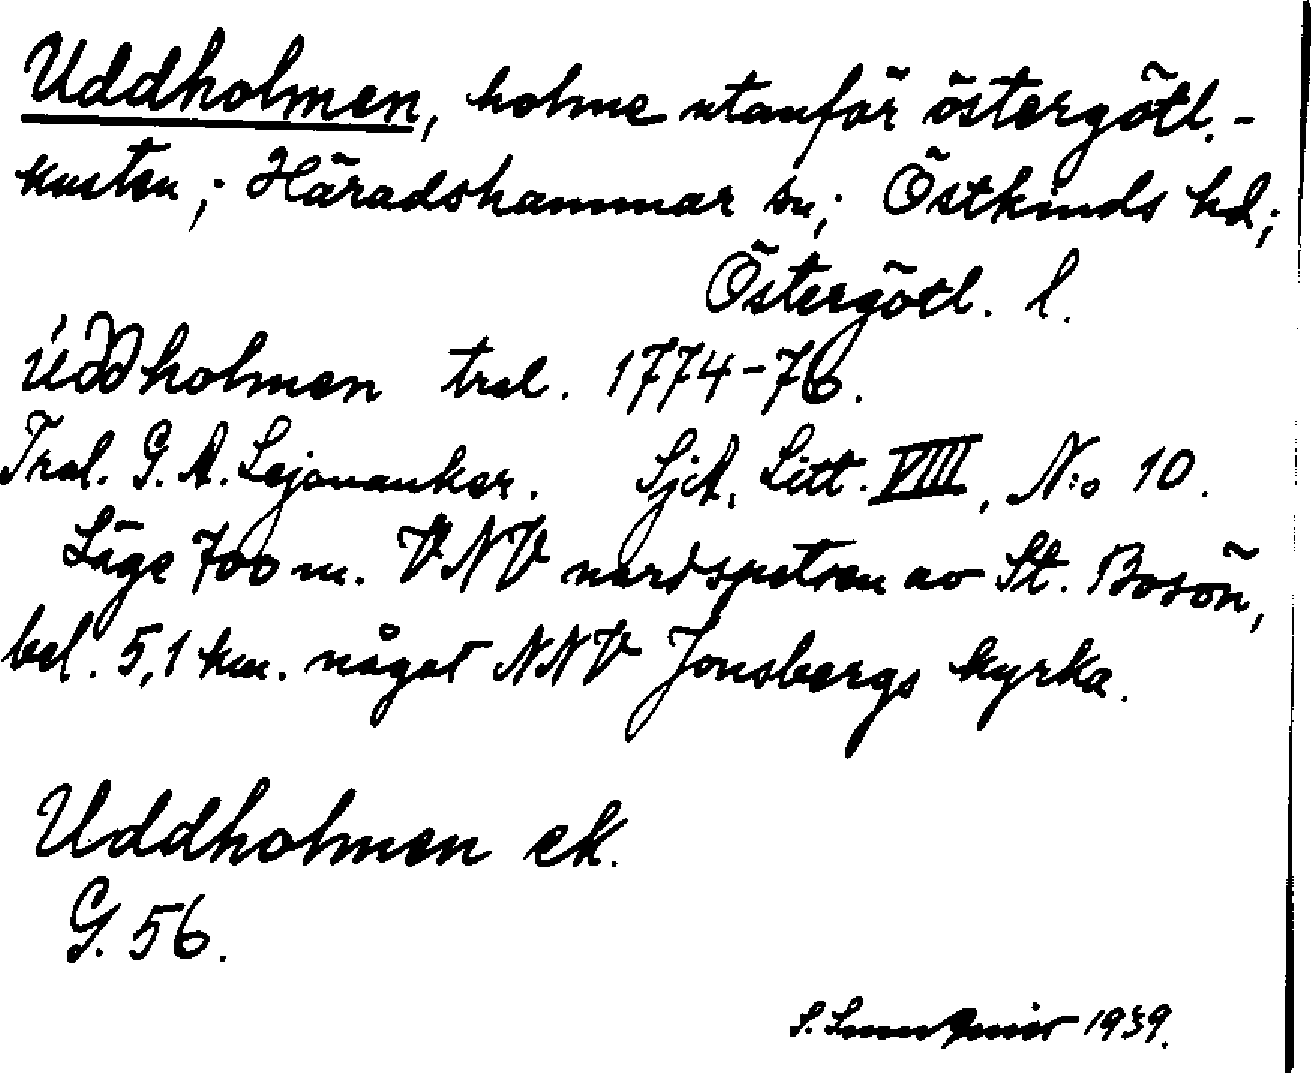 Uddholmen, holme utanför östergötl.-
kusten; Häradshammar sn; Östkinds hd;
Östergötl. l.
Uddholmen tral. 1774-76.
Tral. G. A. Lejonanker. Sjch. Litt. VIII, N:o 10.
Läge 700 m. VNV nordspetsen av St. Bosön,
bel. 5,1 km. något NNV Jonsbergs kyrka.
Uddholmen ek.
G. 56.
S. 1939.